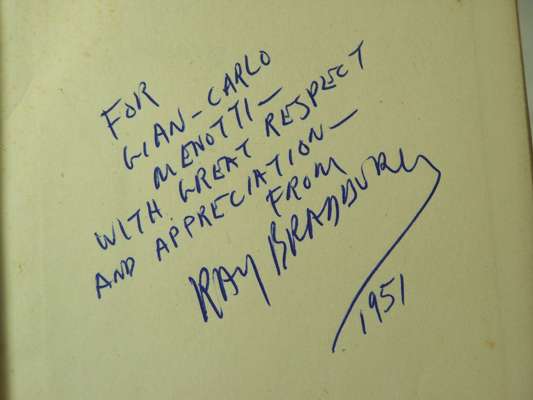 FOR
GIAN-CARLO
MENOTTI—
WITH GREAT RESPECT
AND APPRECIATION—
FROM
RAY BRADBURY
1951